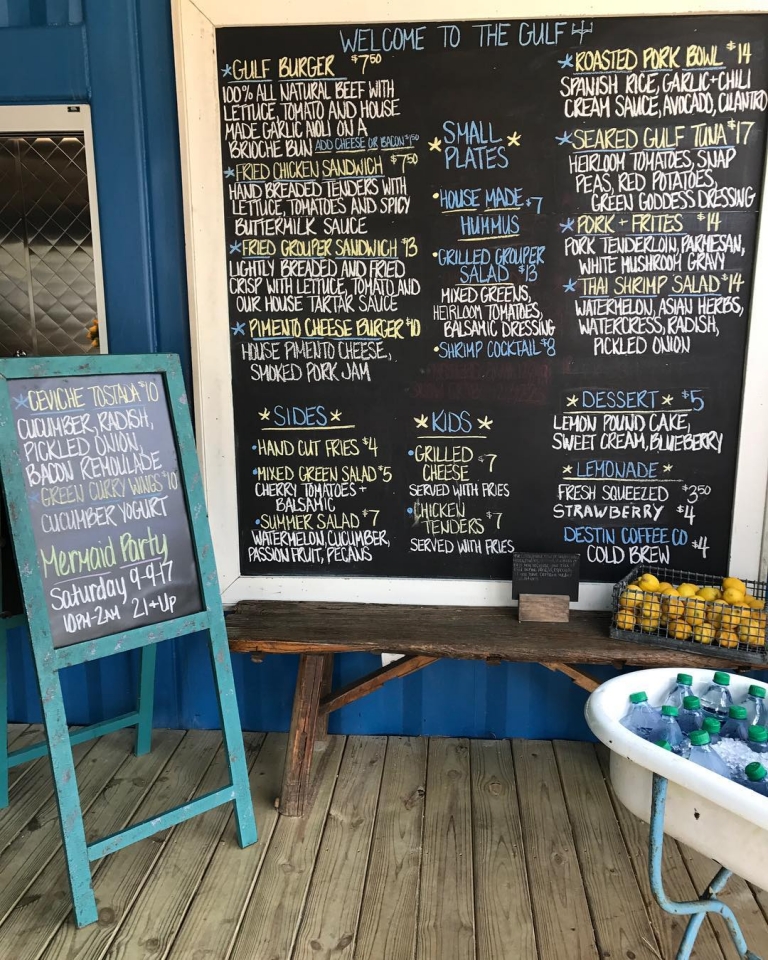 WELCOME TO THE GULF
*GULF BURGER $7.50
100% ALL NATURAL BEEF WITH
LETTUCE, TOMATO AND HOUSE
MADE GARLIC AIOLI ON A
BRIOCHE BUN ADD CHEESE OR BACON $1.50
*FRIED CHICKEN SANDWICH $7.50
HAND BREADED TENDERS WITH
LETTUCE, TOMATOES AND SPICY
BUTTERMILK SAUCE
*FRIED GROUPER SANDWICH $13
LIGHTLY BREADED AND FRIED
CRISP WITH LETTUCE, TOMATO AND
OUR HOUSE TARTAR SAUCE
*PIMENTO CHEESE BURGER $10
HOUSE PIMENTO CHEESE,
SMOKED PORK JAM
*SIDES*
•HAND CUT FRIES $4
•MIXED GREEN SALAD $5
CHERRY TOMATOES +
BALSAMIC
•SUMMER SALAD $7
WATERMELON, CUCUMBER,
PASSION FRUIT, PECANS
*SMALL
PLATES*
•HOUSE MADE $7
HUMMUS
•GRILLED GROUPER
SALAD $13
MIXED GREENS,
HEIRLOOM TOMATOES,
BALSAMIC DRESSING
•SHRIMP COCKTAIL $8
*KIDS*
•GRILLED
CHEESE $7
SERVED WITH FRIES
•CHICKEN
TENDERS $7
SERVED WITH FRIES
*ROASTED PORK BOWL $14
SPANISH RICE, GARLIC+CHILI
CREAM SAUCE, AVOCADO, CILANTRO
*SEARED GULF TUNA $17
HEIRLOOM TOMATOES, SNAP
PEAS, RED POTATOES,
GREEN GODDESS DRESSING
*PORK + FRITES $14
PORK TENDERLOIN, PARMESAN,
WHITE MUSHROOM GRAVY
*THAI SHRIMP SALAD $14
WATERMELON, ASIAN HERBS,
WATERCRESS, RADISH,
PICKLED ONION
*DESSERT* $5
LEMON POUND CAKE,
SWEET CREAM, BLUEBERRY
*LEMONADE*
FRESH SQUEEZED $3.50
STRAWBERRY $4
DESTIN COFFEE CO
COLD BREW $4
*CEVICHE TOSTADA $10
CUCUMBER, RADISH,
PICKLED ONION,
BACON REMOULADE
*GREEN CURRY WINGS $10
CUCUMBER YOGURT
Mermaid Party
Saturday 9-9-17
10PM-2AM 21+UP